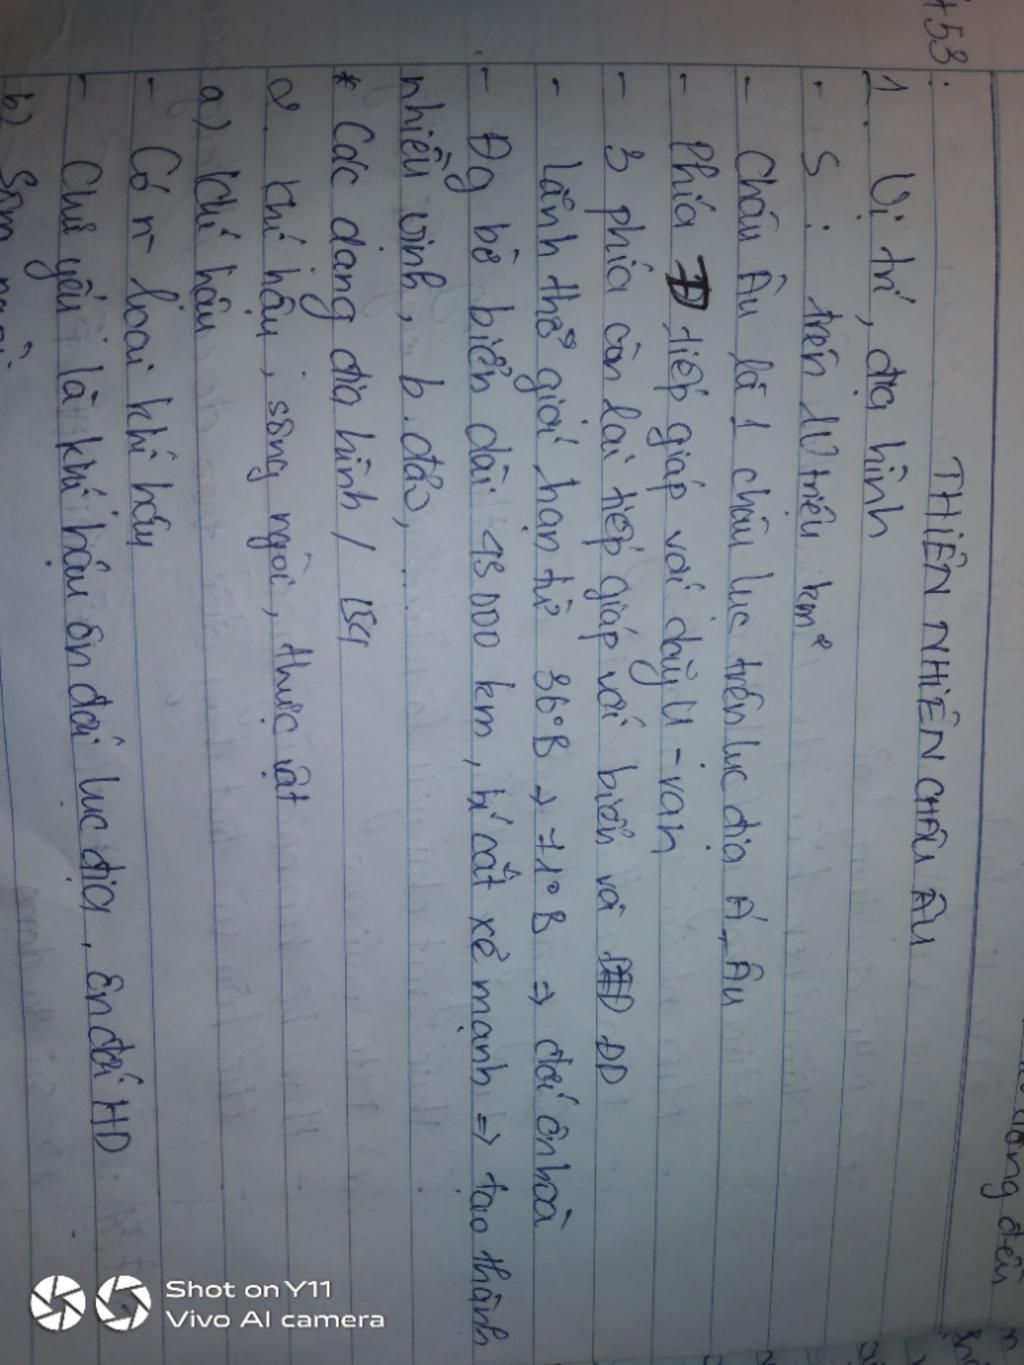 t53:
THIÊN NHIÊN CHÂU ÂU
1. Vị trí, địa hình
- S : trên 10 triệu km²
- Châu Âu là 1 châu lục trên lục địa Á, Âu
- Phía Đ tiếp giáp với dãy U-ran
- 3 phía còn lại tiếp giáp với biển và ĐD
- Lãnh thổ giới hạn từ 36°B → 71°B ⇒ đới ôn hoà
- Đg bờ biển dài 43000 km, bị cắt xẻ mạnh ⇒ tạo thành
nhiều vịnh, b.đảo, ...
* Các dạng địa hình / 154
2. Khí hậu, sông ngòi, thực vật
a) Khí hậu
- Có n- loại khí hậu
- Chủ yếu là khí hậu ôn đới lục địa, ôn đới HD
b) Sông ngòi
đông đều
Shot on Y11
Vivo AI camera